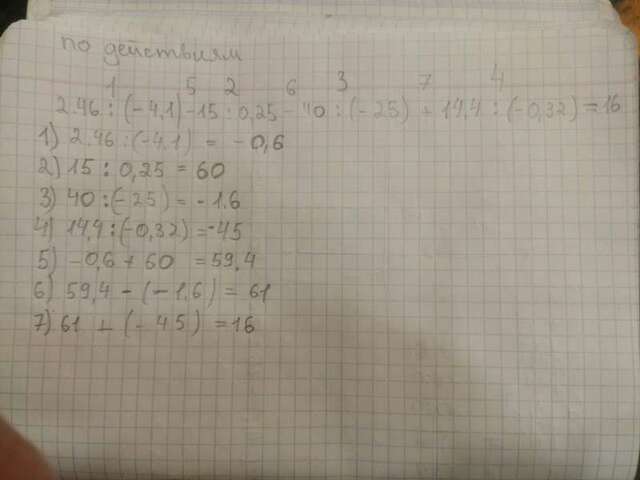 по действиям
1 5 2 6 3 7 4
2.46 : (-4,1) -15 : 0,25 - 40 : (-25) + 14,4 : (-0,32) = 16
1) 2.46 : (-4,1) = -0,6
2) 15 : 0,25 = 60
3) 40 : (-25) = -1.6
4) 14,4 : (-0,32) = -45
5) -0,6 + 60 = 59,4
6) 59,4 - (-1,6) = 61
7) 61 + (-45) = 16